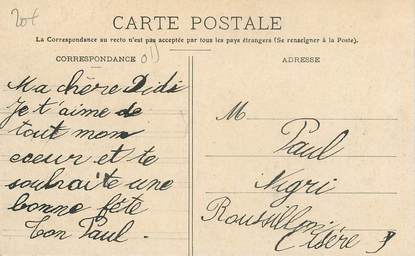 20f
CARTE POSTALE
La Correspondance au recto n'est pas acceptée par tous les pays étrangers (Se renseigner à la Poste).
CORRESPONDANCE
ADRESSE
Ma chère Didi
Je t'aime de
tout mon
coeur et te
souhaite une
bonne fête
Ton Paul.
M.
Paul
Nigri
Roussillon
(Isère)